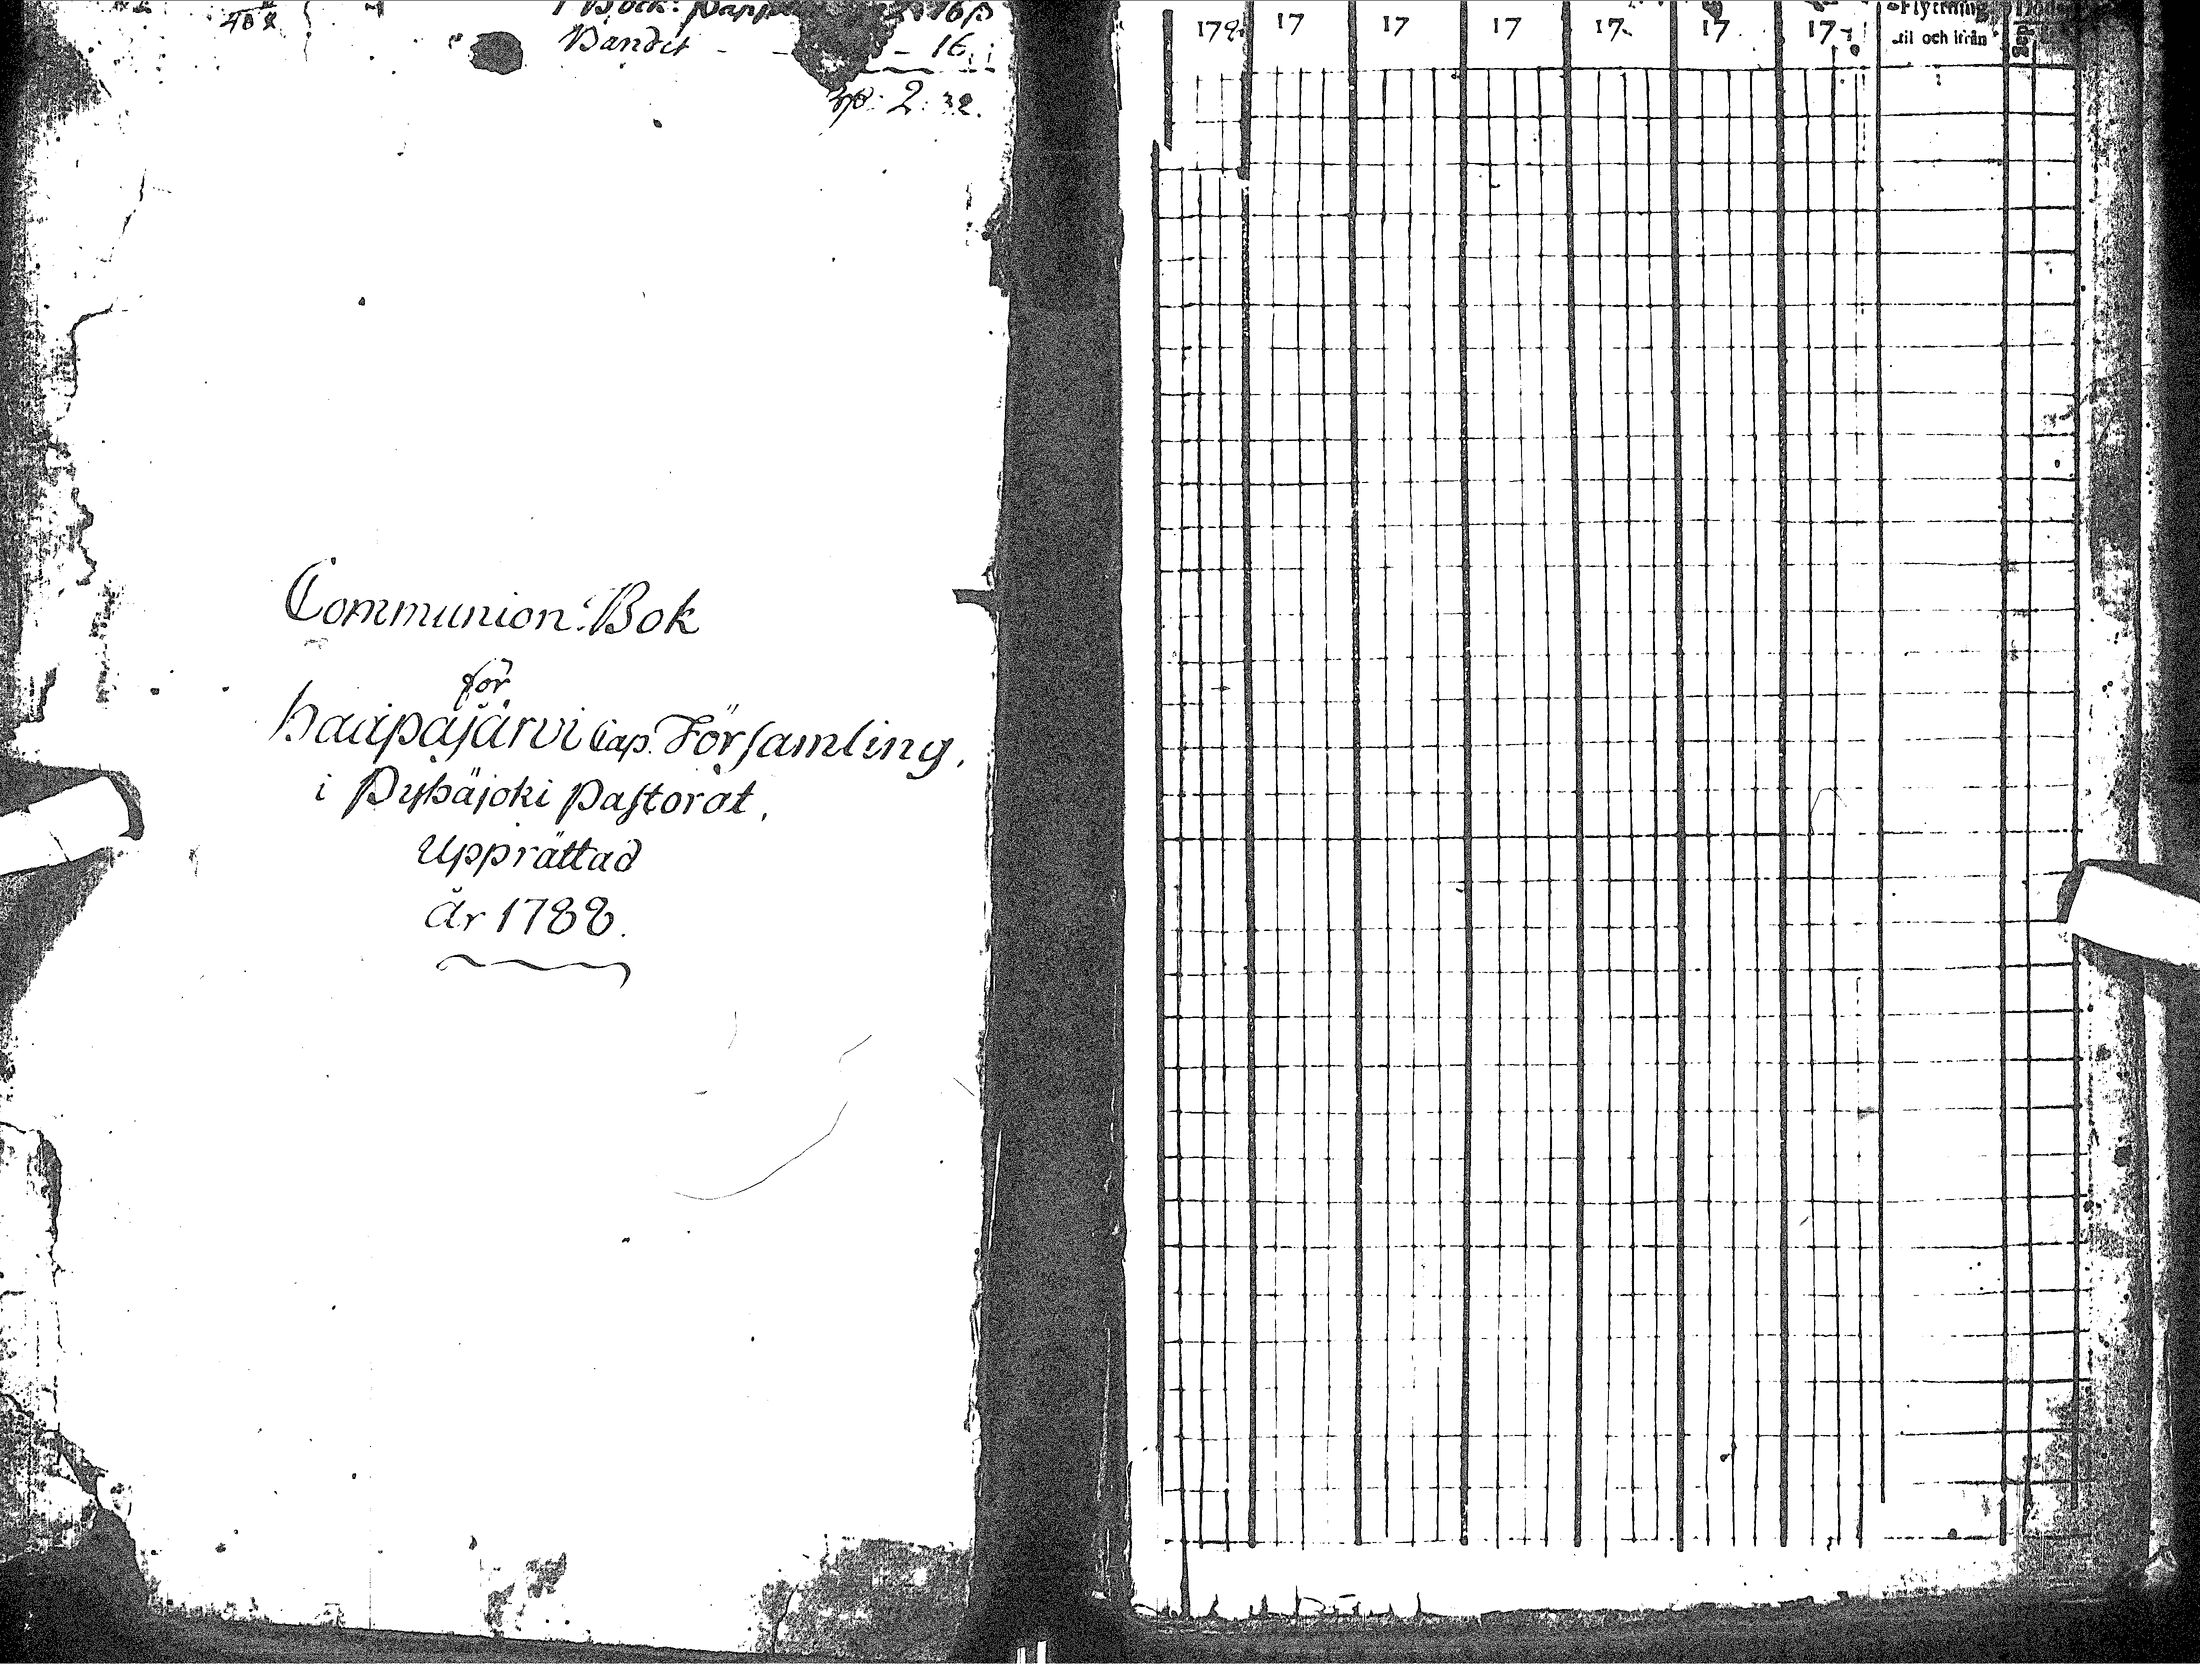 408
Bandet - - 16.
2: 32.
Communion: Bok
för
Haapajärvi Cap. Församling,
i Pyhäjoki Pastorat,
Upprättad
År 1788.
179 17 17 17 17 17 17
Flyttning
til och ifrån